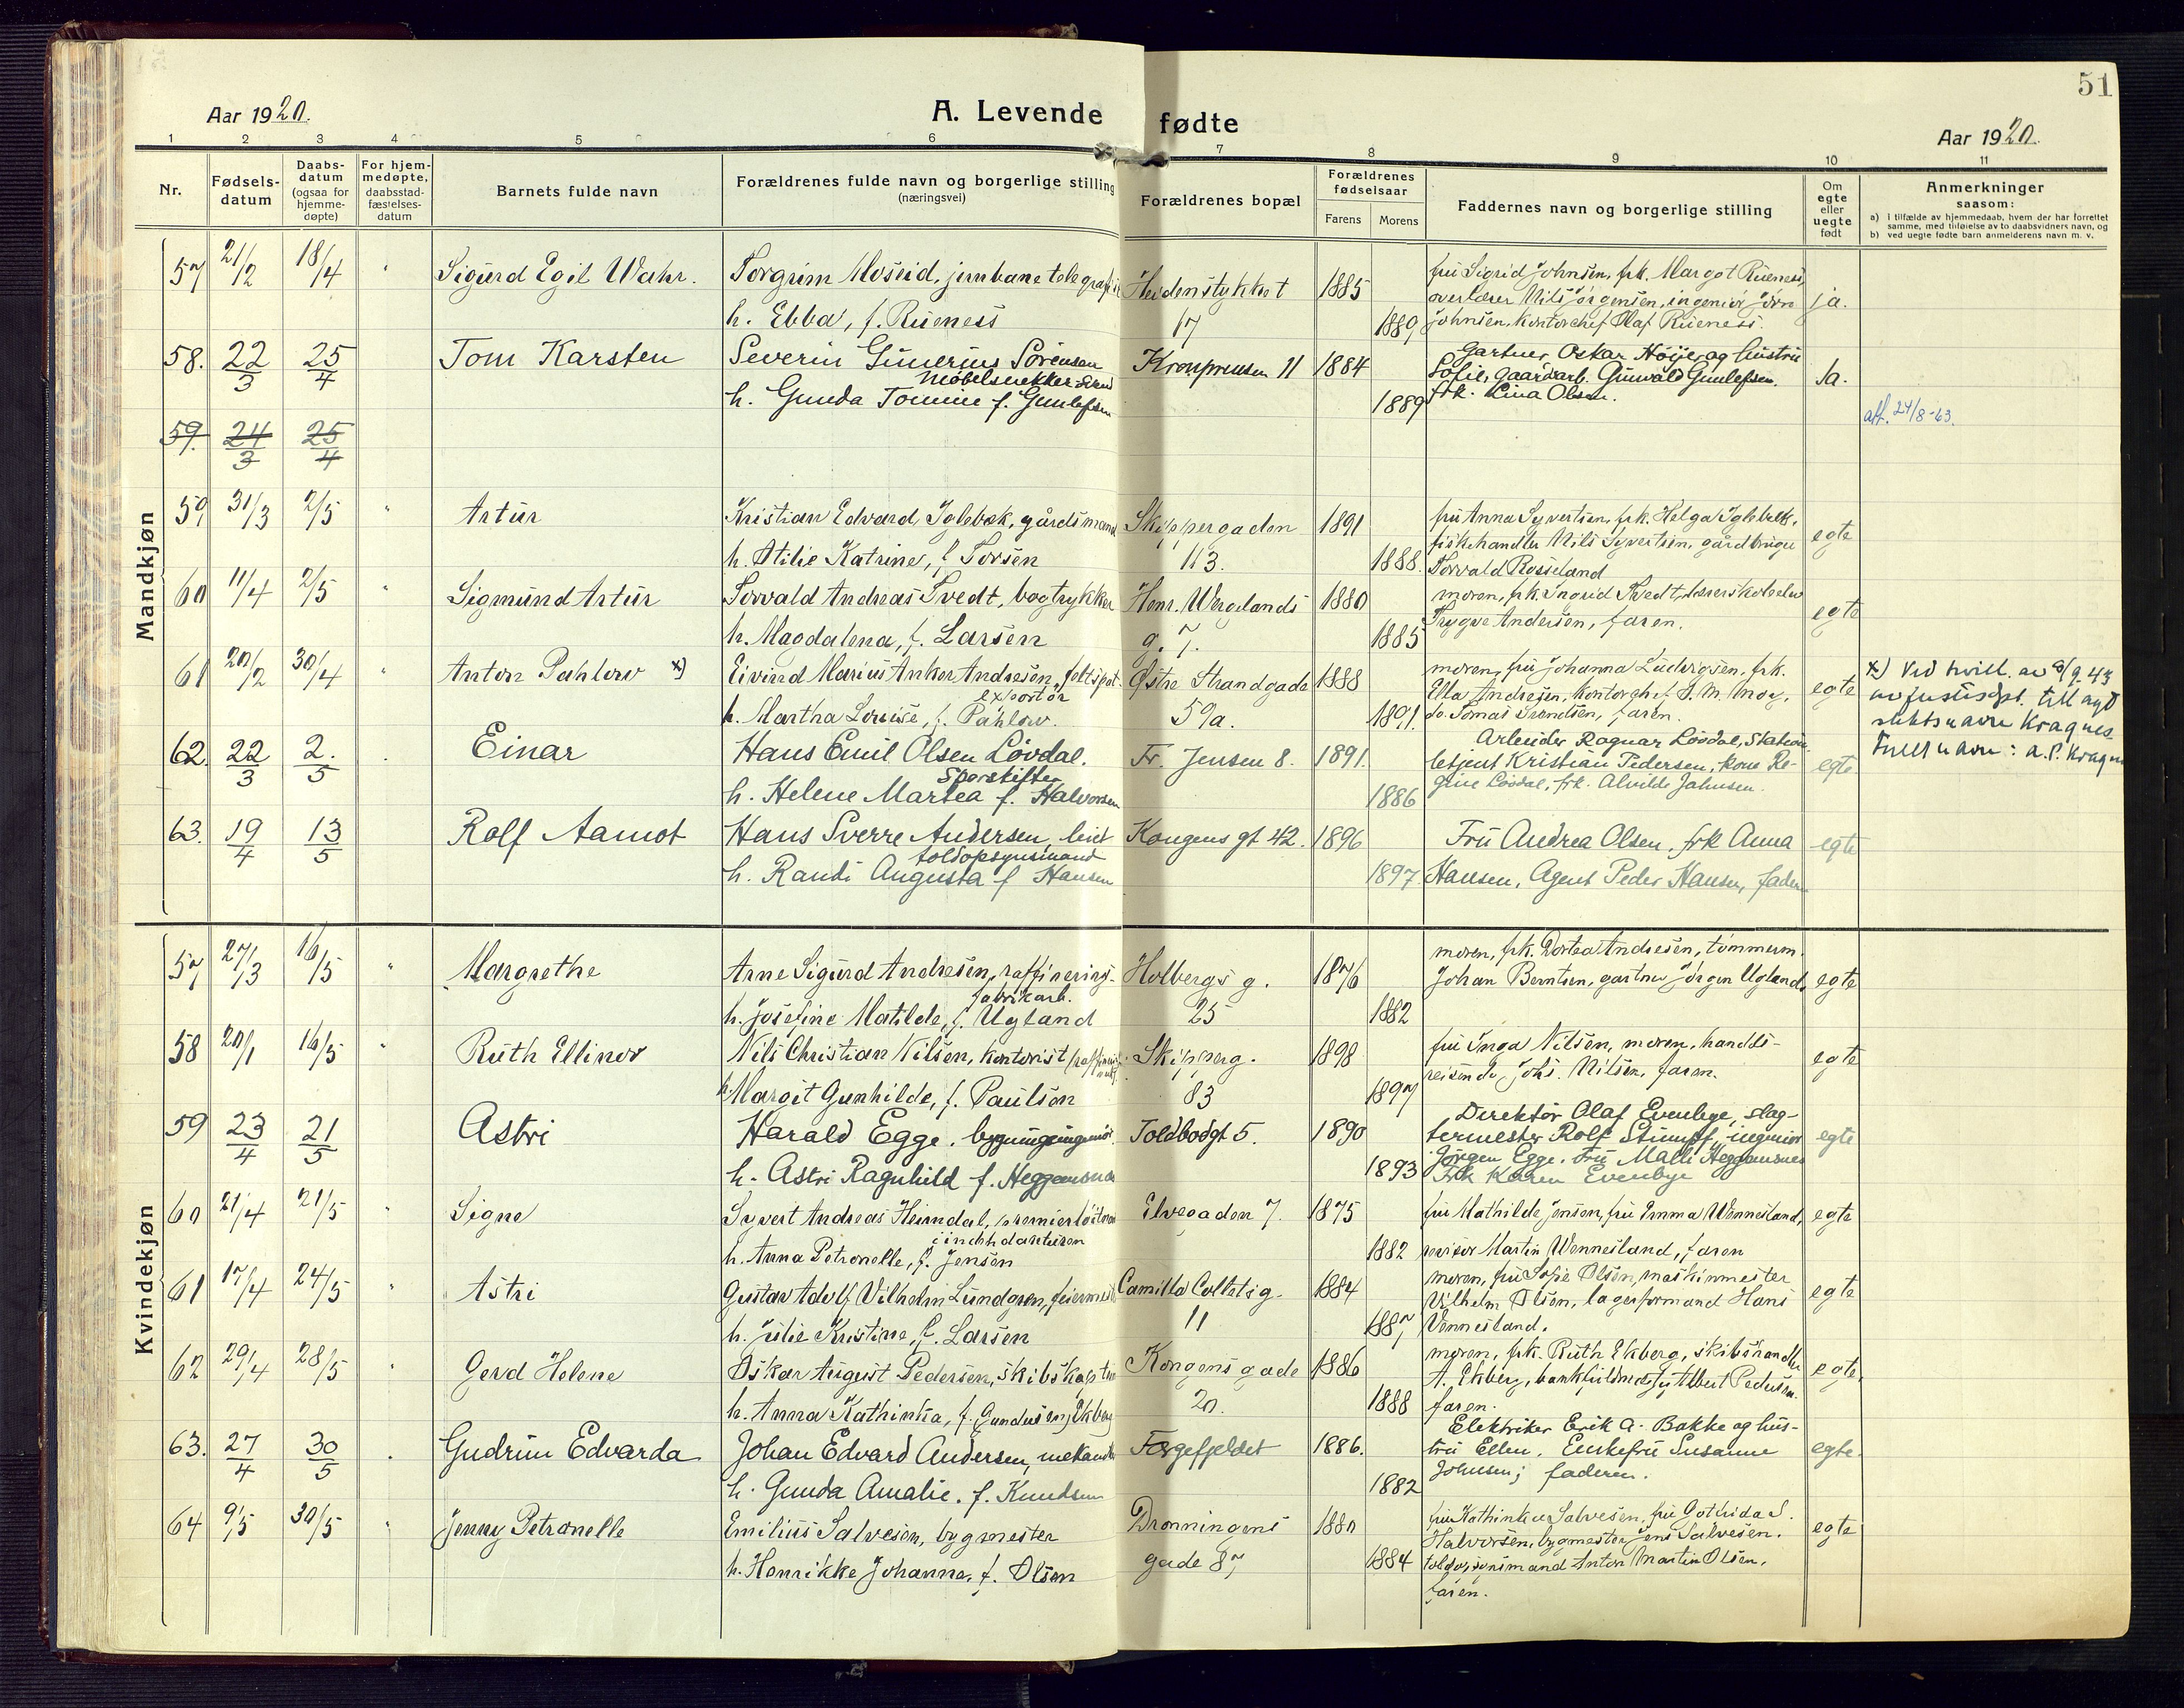 51
Aar 1920.
A. Levende fødte
Aar 1920.
1 2 3 4 5 6 7 8 9 10 11
Nr.
Fødsels-
datum
Daabs-
datum
(ogsaa for
hjemme-
døpte)
For hjem-
medøpte,
daabsstad-
fæstelses-
datum
Barnets fulde navn
Forældrenes fulde navn og borgerlige stilling
(næringsvei)
Forældrenes bopæl
Forældrenes
fødselsaar
Farens Morens
Faddernes navn og borgerlige stilling
Om
egte
eller
uegte
født
Anmerkninger
saasom:
a) i tilfælde av hjemmedaab, hvem der har forrettet
samme, med tilføielse av to daabsvidners navn, og
b) ved uegte fødte barn anmelderens navn m. v.
Mandkjøn
57 21/2 18/4 " Sigurd Egil Wahr. Torgrim Moseid, jernbanetelegrafist Heidenstykket 1885 fru Sigrid Johnsen, frk. Margot Rueness,
overlærer Nils Jørgensen, ingeniør Jørn ja.
h. Ebba, f. Rueness 17 1889, Johnsen, kontorchef Olaf Rueness.
58. 22/3 25/4 Tom Karsten Severin Gunerius Sørensen Kronprinsen 11 1884 Gartner Oskar Höije og hustru
møbelsnekkersvend Sofie, gaardarb. Gunvald Gunlefsen. Ja.
h. Gunda Tomine f. Gunlefsen 1889 frk. Lina Olsen.
att. 24/8-63.
59. 24/3 25/4
59, 31/3 2/5 " Artur Kristian Edvard Iglebæk, gårdsmand Skippergaden 1891 fru Anna Syvertsen, frk. Helga Iglebæk,
fiskehandler Nils Syvertsen, gårdbruger egte
h. Otilie Katrine, f. Torsen 113. 1888. Torvald Rosseland
60 11/4 2/5 " Sigmund Artur Torvald Andreas Tvedt, bogtrykker Henr. Wergelands 1880 moren, frk. Ingrid Tvedt, lærerskoleelev
Trygve Andersen, faren. egte
h. Magdalena, f. Larsen g. 7. 1885
61 20/2 30/4 " Anton Pahlow x) Eivind Marius Anker Andresen, feltspat- Østre Strandgade 1888 moren, fru Johanna Ludvigsen, frk.
exportør Ella Andresen, kontorchef S. M. Moy, egte
h. Martha Louise, f. Pahlow. 59a. 1891. do. Tomas Svendsen, faren.
x) Ved bevill. av 8/9.43
av justisdpt. tatt nytt
slektsnavn Kragnes
Fullt navn: A.P. Kragnes
62. 22/3 2./5 . Einar Hans Emil Olsen Løvdal. Fr. Jensen 8. 1891. Arbeider Ragnar Løvdal, Station-
Sporskifter betjent Kristian Pedersen, kone Re- egte
h. Helene Martea f. Halvorsen 1886 gine Løvdal, frk. Alvilde Jahnsen.
63. 19/4 13/5 Rolf Aamot Hans Sverre Andersen, Kongens gt 42. 1896 Fru Andrea Olsen, frk Anna egte
toldopsynsmand
h. Randi Augusta f Hansen 1897. Hansen, Agent Peder Hansen, fader
Kvindekjøn
57, 27/3 16/5 " Margrethe Arne Sigurd Andresen, raffinerings- Holbergs g. 1876 moren, frk. Dortea Andresen, tømmerm.
fabrikarb. Johan Berntsen, gartner Jørgen Ugland, egte
h. Josefine Matilde, f. Ugland 25 1882
58 20/1 16/5 " Ruth Ellinor Nils Christian Nilsen, kontorist Skipperg. 1898 fru Inga Nilsen, moren, handels-
reisende Johs. Nilsen, faren. egte
h. Margit Gunhilde, f. Paulsen 83 1897
59 23/4 21/5 Astri Harald Egge. bygningsingeniør Toldbodgt 5. 1890 Direktör Olaf Evenbye, slag-
termester Rolf Stumpf, ingeniør egte
h. Astri Ragnhild f. Heggemsnes 1893 Jörgen Egge. Fru Malli Heggemsnes
Frk Karen Evenbye
60 21/4 21/5 " Signe Syvert Andreas Heimdal, premierløitnant Elvegaden 7. 1875 fru Mathilde Jensen, fru Emma Wennesland, egte
i indtendanturen
h. Anna Petronelle, f. Jensen 1882 revisor Martin Wennesland, faren
61 17/4 24/5 " Astri Gustav Adolf Vilhelm Lundgren, feiermest. Camilla Colletsg. 1884 moren, fru Sofie Olsen, maskinmester
Vilhelm Olsen, lagerformand Hans egte
h. Julie Kristine, f. Larsen 11 1887, Vennesland.
62 29/4 28/5 " Gerd Helene Oskar August Pedersen, skibskaptein Kongens gade 1886 moren, frk. Ruth Ekberg, skibshandler
A. Ekberg, bankfuldmegtig Albert Pedersen. egte,
h. Anna Kathinka, f. Gundersen, Ekberg 20. 1888 faren.
63. 27/4 30/5 . Gudrun Edvarda Johan Edvard Andersen, mekaniker Torgefjeldet 1886. Elektriker Erik A. Bakke og hus-
tru Ellen. Enkefru Susanne egte.
h. Gunda Amalie. f. Knudsen 1882 Johnsen; faderen.
64 9/5 30/5 " Jenny Petronelle Emilius Salvesen, bygmester Dronningens 1880 fru Kathinka Salvesen, fru Gothida S.
Halvorsen, bygmester Jens Salvesen. egte
h. Henrikke Johanne, f. Olsen gade 87, 1884 toldopsynsmand Anton Martin Olsen,
faren.